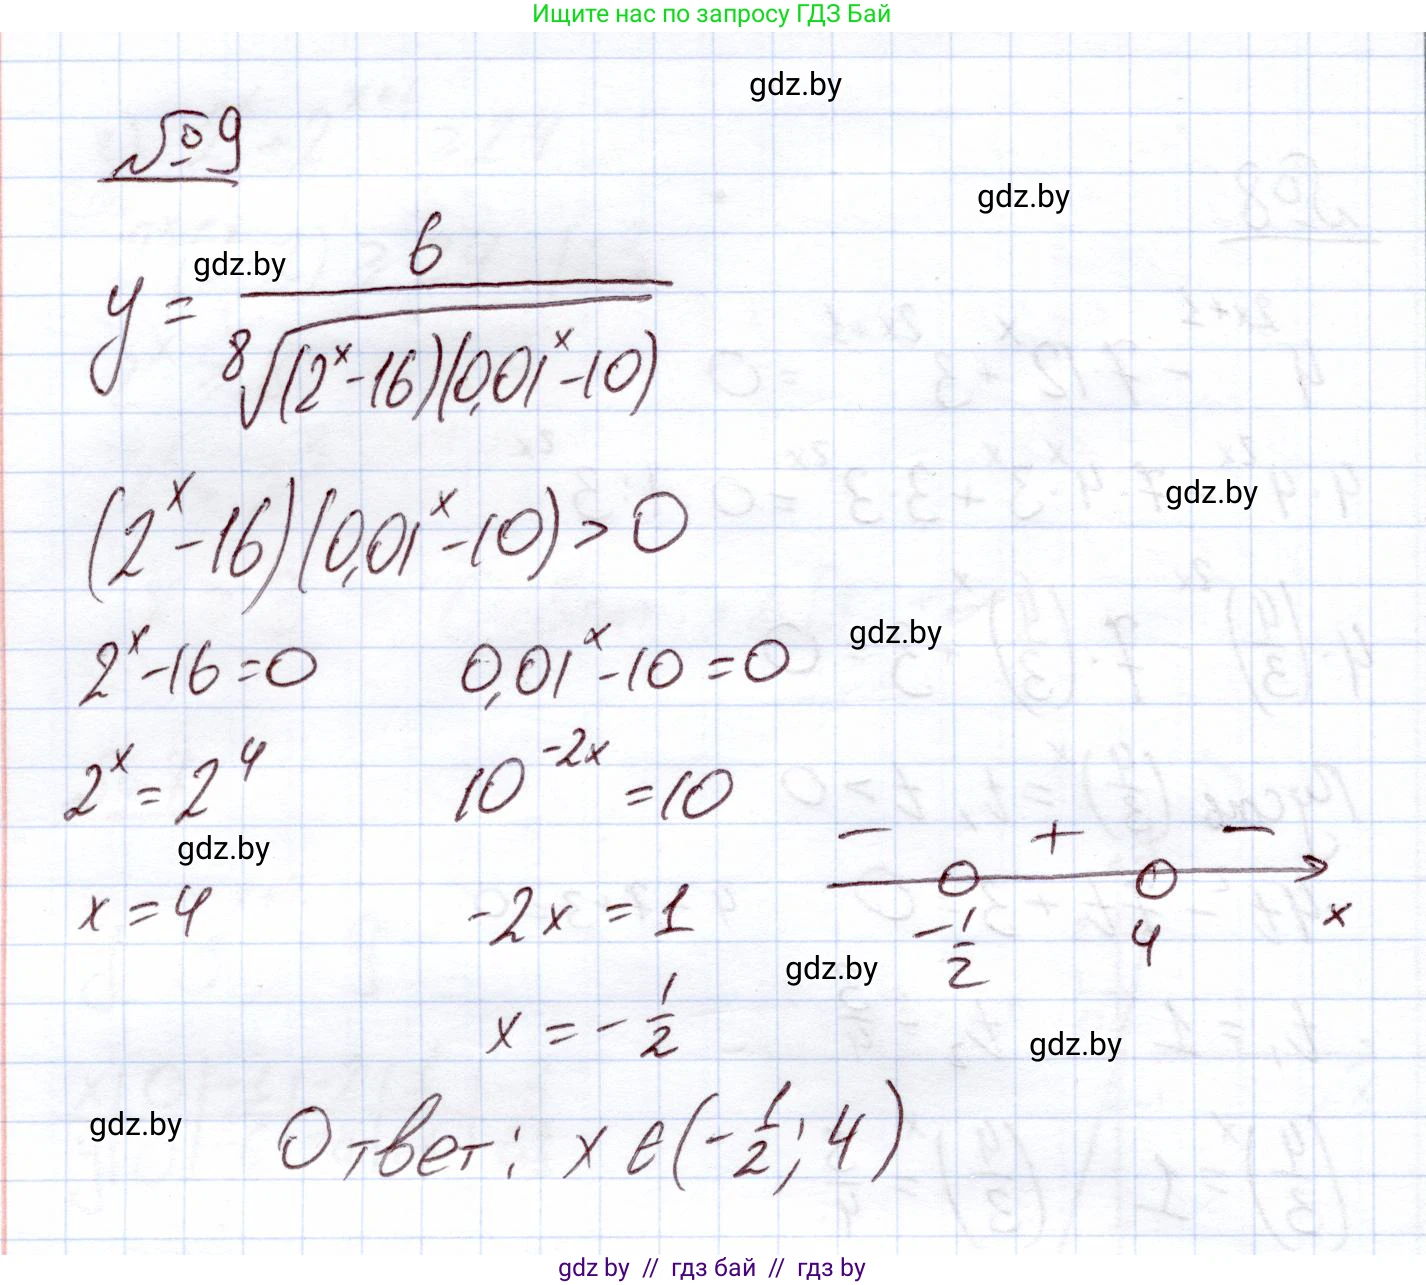 Ищите нас по запросу ГДЗ Бай
gdz.by
№9
gdz.by
gdz.by
y = 6 / ⁸√((2^x - 16)(0,01^x - 10))
gdz.by
(2^x - 16)(0,01^x - 10) > 0
gdz.by
2^x - 16 = 0    0,01^x - 10 = 0
2^x = 2^4    10^(-2x) = 10
gdz.by
− + −
x = 4    -2x = 1
-1/2 4 x
gdz.by
x = -1/2
gdz.by
gdz.by
Ответ: x ∈ (-1/2; 4)
gdz.by // гдз бай // гдз by